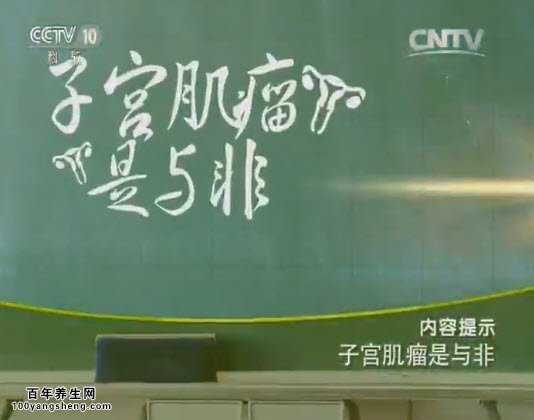 CCTV 10
科教
CNTV
子宫肌瘤
是与非
内容提示
子宫肌瘤是与非
百年养生网
100yangsheng.com